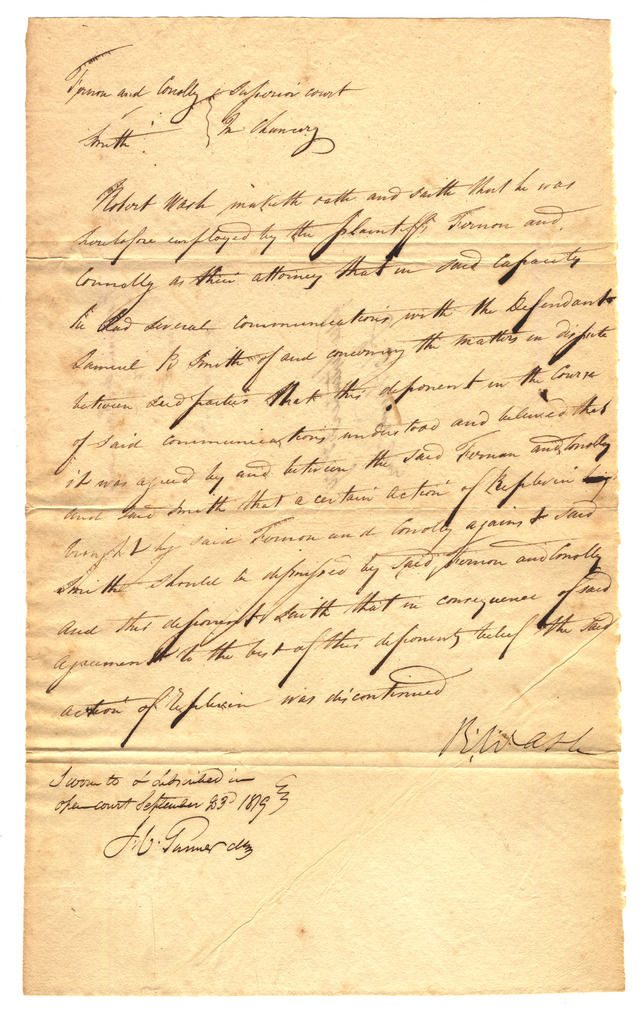 Fernon and Conolly } Superior court
v
Smith } In Chancery
Robert Wash maketh oath and saith that he was
heretofore employed by the plaintiffs Fernon and
Connolly as their attorney that in said Capacity
he had several communications with the Defendant
Samuel B Smith of and concerning the matters in dispute
between said parties that this deponent in the Course
of said communications understood and believed that
it was agreed by and between the said Fernon and Conolly
and said Smith that a certain action of Replevin
brought by said Fernon and Conolly against said
Smith should be dismissed by said Fernon and Conolly
and this deponent saith that in consequence of said
agreement to the best of this deponents belief the said
action of Replevin was discontinued
R. Wash
Sworn to & subscribed in
open court September 23d 1819